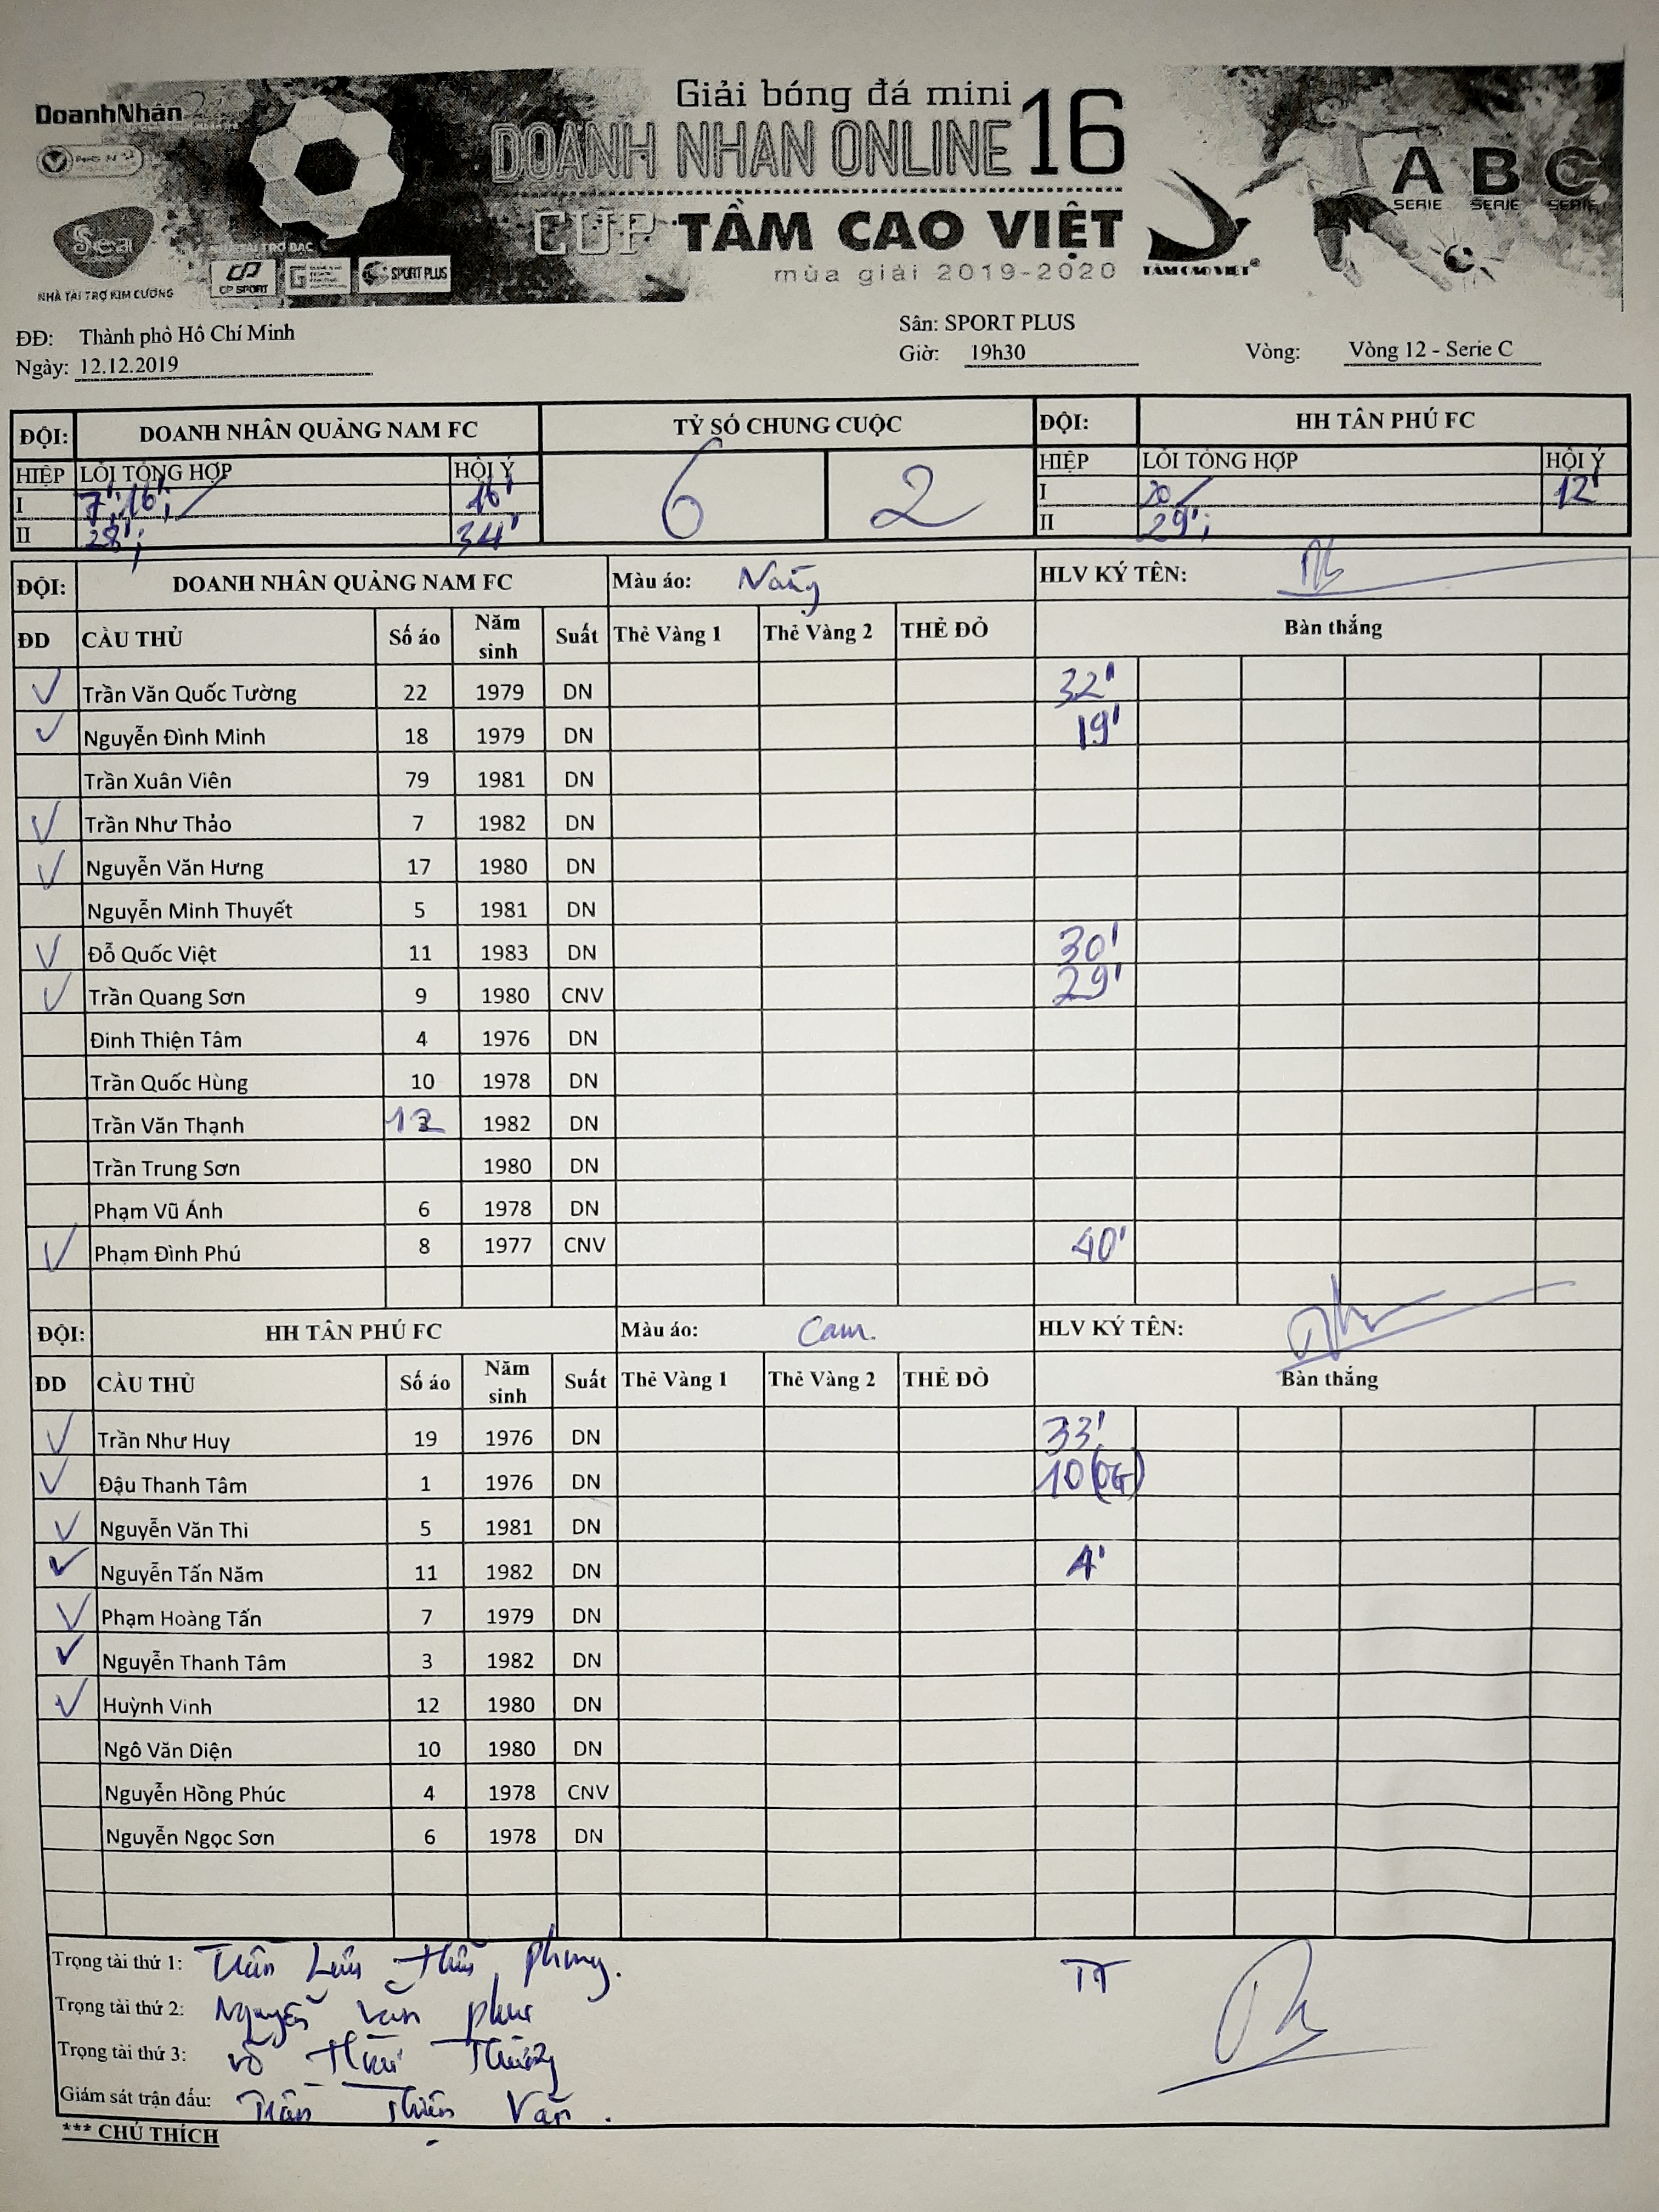 DoanhNhân
Giải bóng đá mini
DOANH NHAN ONLINE 16
CUP TẦM CAO VIỆT
mùa giải 2019-2020
TẦM CAO VIỆT®
A B C
SERIE SERIE SERIE
CP SPORT SPORT PLUS
NHÀ TÀI TRỢ KIM CƯƠNG
ĐĐ: Thành phố Hồ Chí Minh Sân: SPORT PLUS
Ngày: 12.12.2019 Giờ: 19h30 Vòng: Vòng 12 - Serie C
ĐỘI: DOANH NHÂN QUẢNG NAM FC TỶ SỐ CHUNG CUỘC ĐỘI: HH TÂN PHÚ FC
HIỆP LỖI TỔNG HỢP HỘI Ý 6 2 HIỆP LỖI TỔNG HỢP HỘI Ý
I 7'; 16'; 16' I 20 12'
II 28'; 34' II 29';
ĐỘI: DOANH NHÂN QUẢNG NAM FC Màu áo: HLV KÝ TÊN:
ĐD CẦU THỦ Số áo Năm sinh Suất Thẻ Vàng 1 Thẻ Vàng 2 THẺ ĐỎ Bàn thắng
Trần Văn Quốc Tường 22 1979 DN 32'
Nguyễn Đình Minh 18 1979 DN 19'
Trần Xuân Viên 79 1981 DN
Trần Như Thảo 7 1982 DN
Nguyễn Văn Hưng 17 1980 DN
Nguyễn Minh Thuyết 5 1981 DN
Đỗ Quốc Việt 11 1983 DN 30'
Trần Quang Sơn 9 1980 CNV 29'
Đinh Thiện Tâm 4 1976 DN
Trần Quốc Hùng 10 1978 DN
Trần Văn Thạnh 12 1982 DN
Trần Trung Sơn 1980 DN
Phạm Vũ Ánh 6 1978 DN
Phạm Đình Phú 8 1977 CNV 40'
ĐỘI: HH TÂN PHÚ FC Màu áo: Cam. HLV KÝ TÊN:
ĐD CẦU THỦ Số áo Năm sinh Suất Thẻ Vàng 1 Thẻ Vàng 2 THẺ ĐỎ Bàn thắng
Trần Như Huy 19 1976 DN 33'
Đậu Thanh Tâm 1 1976 DN 10(OG)
Nguyễn Văn Thi 5 1981 DN
Nguyễn Tấn Năm 11 1982 DN 4'
Phạm Hoàng Tấn 7 1979 DN
Nguyễn Thanh Tâm 3 1982 DN
Huỳnh Vinh 12 1980 DN
Ngô Văn Diện 10 1980 DN
Nguyễn Hồng Phúc 4 1978 CNV
Nguyễn Ngọc Sơn 6 1978 DN
Trọng tài thứ 1: Trần TT
Trọng tài thứ 2: Nguyễn Văn
Trọng tài thứ 3: Võ
Giám sát trận đấu: Trần Văn.
*** CHÚ THÍCH